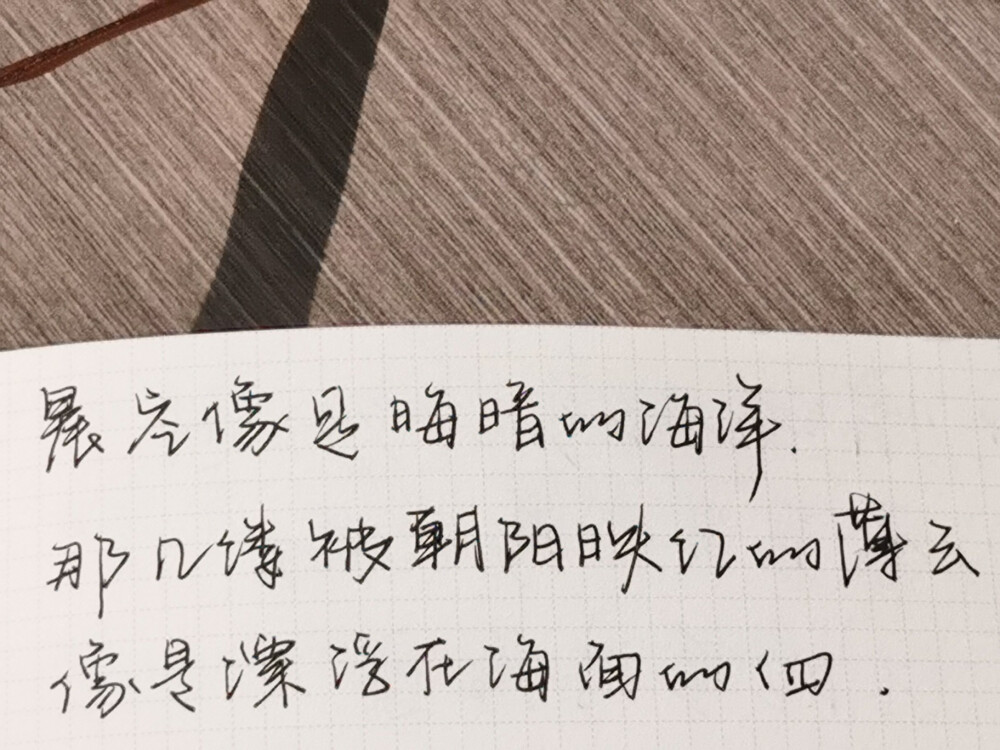 晨空像是晦暗的海洋.
那几缕被朝阳映红的薄云
像是漂浮在海面的.